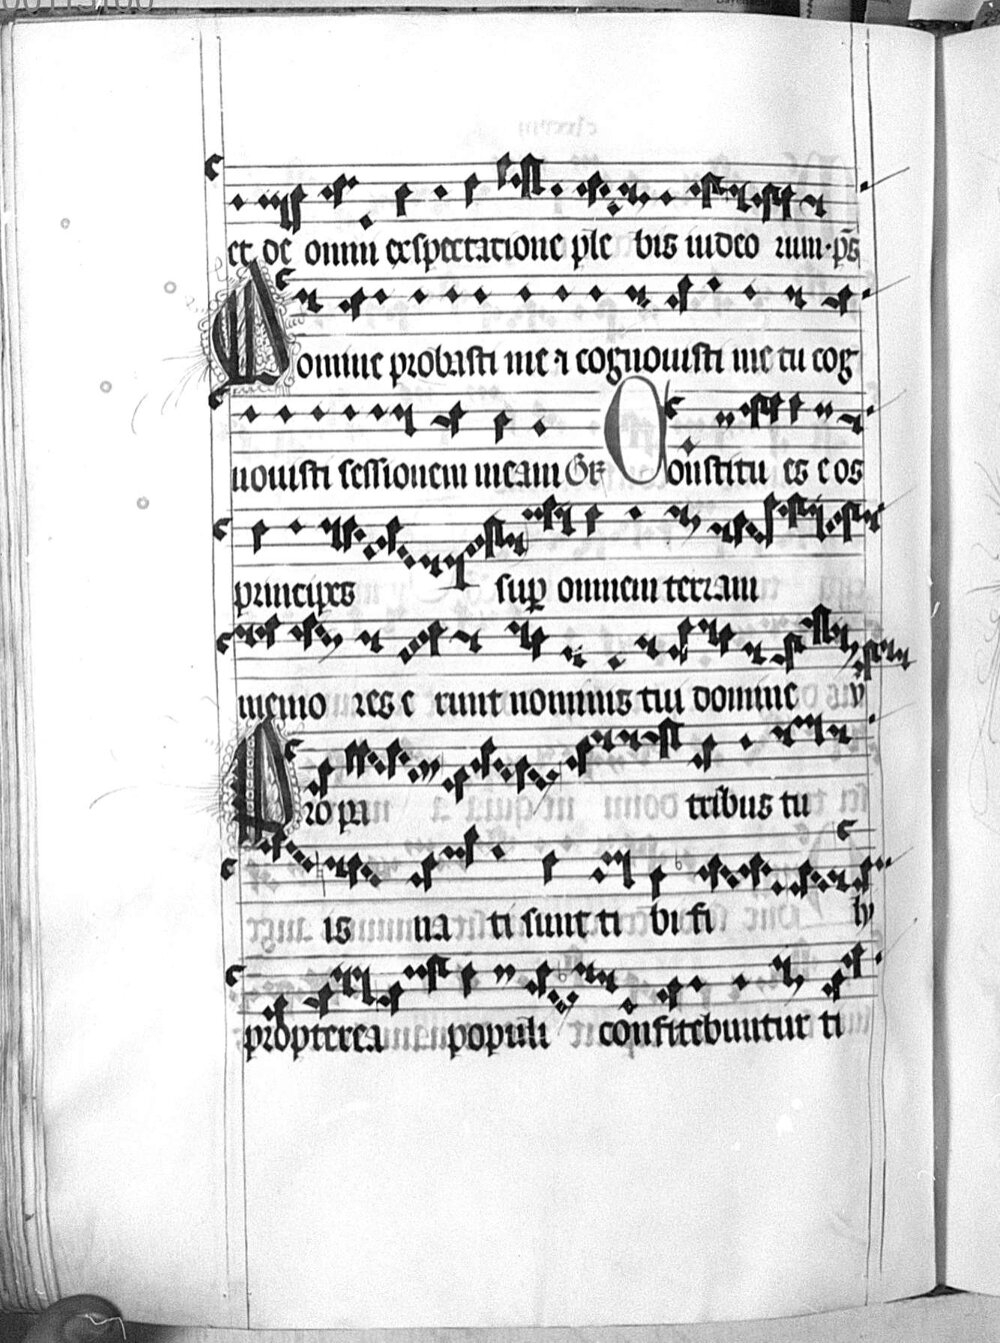 et de omni exspectatione ple bis iudeo rum · ps̄
Domine probasti me ⁊ cognouisti me tu cog
nouisti sessionem meam Gr̄ Constitu es e os
principes sup̱ omnem terram
memo res e runt nominis tui domine v̄
Pro pa tribus tu
is na ti sunt ti bi fi ly
propterea populi confitebuntur ti